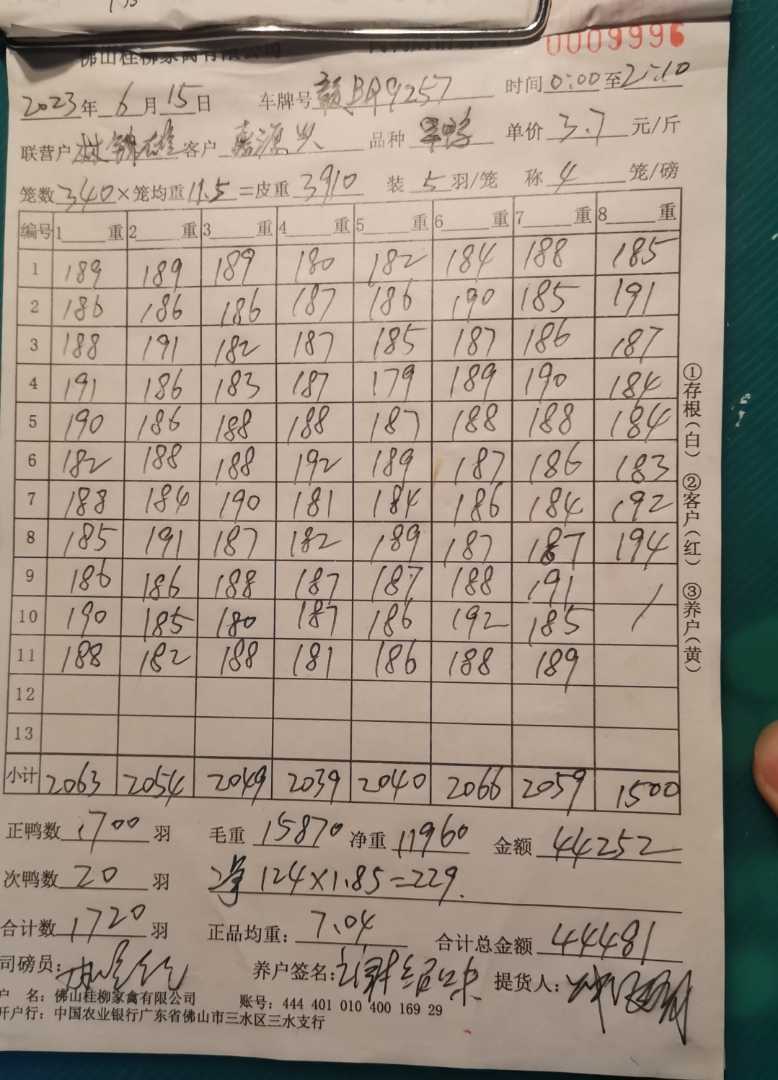 佛山桂柳家禽有限公司
0009996
2023年 6月15日 车牌号 赣BA9257 时间 0:00 至
联营户 客户 嘉源兴 品种 单价 3.7 元/斤
笼数 340 ×笼均重 11.5 =皮重 3910 装 5 羽/笼 称 4 笼/磅
编号 1 重 2 重 3 重 4 重 5 重 6 重 7 重 8 重
1 189 189 189 180 182 184 188 185
2 186 186 186 187 186 190 185 191
3 188 191 182 187 185 187 186 187
4 191 186 183 187 179 189 190 184
5 190 186 188 188 187 188 188 184
6 182 188 188 192 189 187 186 183
7 188 184 190 181 184 186 184 192
8 185 191 187 182 189 187 187 194
9 186 186 188 187 187 188 191 /
10 190 185 180 187 186 192 185 /
11 188 182 188 181 186 188 189
12
13
小计 2063 2054 2049 2039 2040 2066 2059 1500
①存根(白) ②客户(红) ③养户(黄)
正鸭数 1700 羽 毛重 15870 净重 11960 金额 44252
次鸭数 20 羽 净 124×1.85=229.
合计数 1720 羽 正品均重: 7.04 合计总金额 44481
司磅员: 养户签名: 提货人:
户 名: 佛山桂柳家禽有限公司 账号: 444 401 010 400 169 29
开户行: 中国农业银行广东省佛山市三水区三水支行